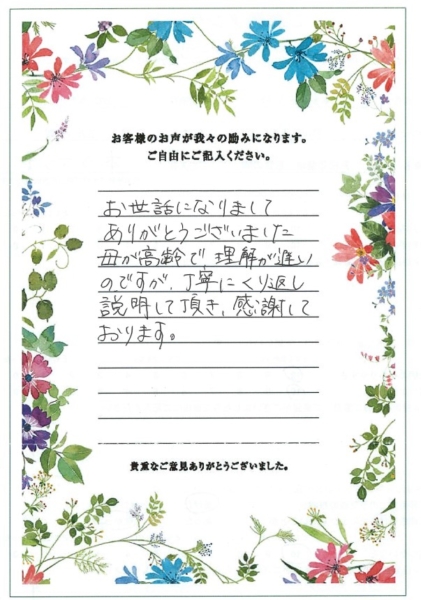 お客様のお声が我々の励みになります。
ご自由にご記入ください。
お世話になりまして
ありがとうございました
母が高齢で、理解が遅い
のですが、丁寧にくり返し
説明して頂き、感謝して
おります。
貴重なご意見ありがとうございました。